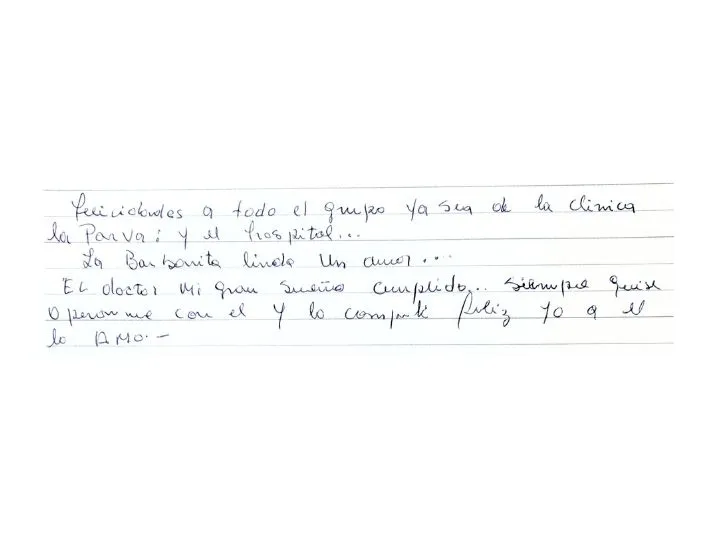 Felicidades a todo el grupo ya sea de la clinica
la Parva: y el hospital...
La Barbarita linda un amor....
EL doctor mi gran sueño cumplido... siempre quise
Operarme con el y lo compartí feliz yo a el
lo AMO.-